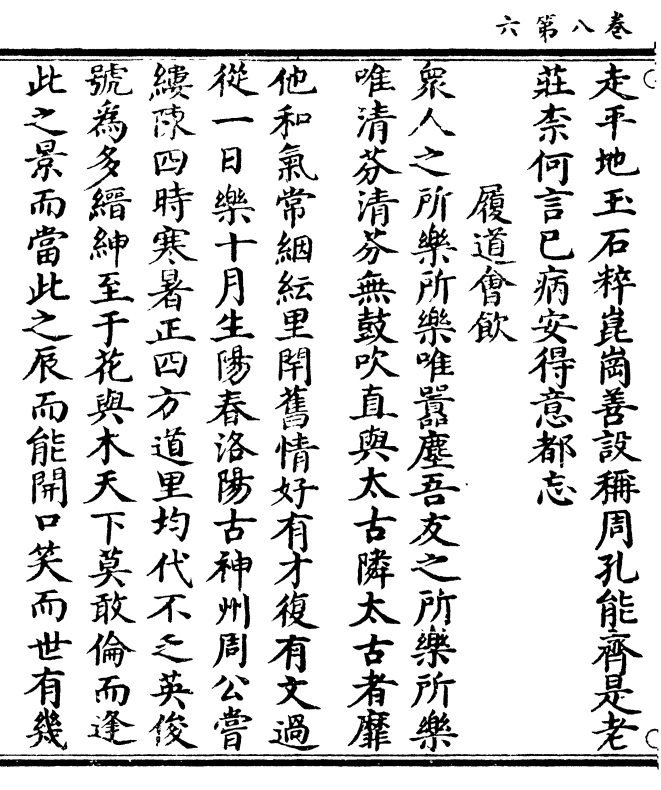 卷八第六
走平地玉石粹崑崗善設稱周孔能齊是老
莊柰何言已病安得意都忘
履道會飲
衆人之所樂所樂唯囂塵吾友之所樂所樂
唯清芬清芬無鼓吹直與太古隣太古者靡
他和氣常絪紜里閈舊情好有才復有文過
從一日樂十月生陽春洛陽古神州周公嘗
縷陳四時寒暑正四方道里均代不乏英俊
號為多縉紳至于花與木天下莫敢倫而逢
此之景而當此之辰而能開口笑而世有幾